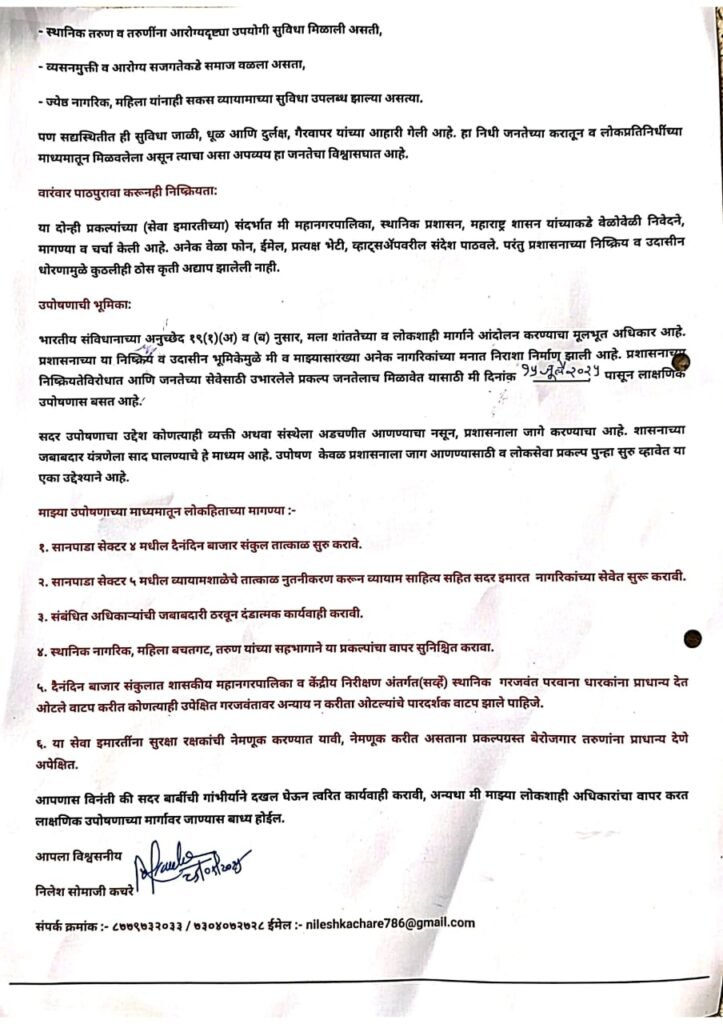 - स्थानिक तरुण व तरुणींना आरोग्यदृष्ट्या उपयोगी सुविधा मिळाली असती,
- व्यसनमुक्ती व आरोग्य सजगतेकडे समाज वळला असता,
- ज्येष्ठ नागरिक, महिला यांनाही सकस व्यायामाच्या सुविधा उपलब्ध झाल्या असत्या.
पण सद्यस्थितीत ही सुविधा जाळी, धूळ आणि दुर्लक्ष, गैरवापर यांच्या आहारी गेली आहे. हा निधी जनतेच्या करातून व लोकप्रतिनिधींच्या
माध्यमातून मिळवलेला असून त्याचा असा अपव्यय हा जनतेचा विश्वासघात आहे.
वारंवार पाठपुरावा करूनही निष्क्रियता:
या दोन्ही प्रकल्पांच्या (सेवा इमारतीच्या) संदर्भात मी महानगरपालिका, स्थानिक प्रशासन, महाराष्ट्र शासन यांच्याकडे वेळोवेळी निवेदने,
मागण्या व चर्चा केली आहे. अनेक वेळा फोन, ईमेल, प्रत्यक्ष भेटी, व्हाट्सॲपवरील संदेश पाठवले. परंतु प्रशासनाच्या निष्क्रिय व उदासीन
धोरणामुळे कुठलीही ठोस कृती अद्याप झालेली नाही.
उपोषणाची भूमिका:
भारतीय संविधानाच्या अनुच्छेद १९(१)(अ) व (ब) नुसार, मला शांततेच्या व लोकशाही मार्गाने आंदोलन करण्याचा मूलभूत अधिकार आहे.
प्रशासनाच्या या निष्क्रिय व उदासीन भूमिकेमुळे मी व माझ्यासारख्या अनेक नागरिकांच्या मनात निराशा निर्माण झाली आहे. प्रशासनाच्या
निष्क्रियतेविरोधात आणि जनतेच्या सेवेसाठी उभारलेले प्रकल्प जनतेलाच मिळावेत यासाठी मी दिनांक पासून लाक्षणिक
उपोषणास बसत आहे.
सदर उपोषणाचा उद्देश कोणत्याही व्यक्ती अथवा संस्थेला अडचणीत आणण्याचा नसून, प्रशासनाला जागे करण्याचा आहे. शासनाच्या
जबाबदार यंत्रणेला साद घालण्याचे हे माध्यम आहे. उपोषण केवळ प्रशासनाला जाग आणण्यासाठी व लोकसेवा प्रकल्प पुन्हा सुरु व्हावेत या
एका उद्देश्याने आहे.
माझ्या उपोषणाच्या माध्यमातून लोकहिताच्या मागण्या :-
१. सानपाडा सेक्टर ४ मधील दैनंदिन बाजार संकुल तात्काळ सुरु करावे.
२. सानपाडा सेक्टर ५ मधील व्यायामशाळेचे तात्काळ नुतनीकरण करून व्यायाम साहित्य सहित सदर इमारत नागरिकांच्या सेवेत सुरू करावी.
३. संबंधित अधिकाऱ्यांची जबाबदारी ठरवून दंडात्मक कार्यवाही करावी.
४. स्थानिक नागरिक, महिला बचतगट, तरुण यांच्या सहभागाने या प्रकल्पांचा वापर सुनिश्चित करावा.
५. दैनंदिन बाजार संकुलात शासकीय महानगरपालिका व केंद्रीय निरीक्षण अंतर्गत(सर्व्हे) स्थानिक गरजवंत परवाना धारकांना प्राधान्य देत
ओटले वाटप करीत कोणत्याही उपेक्षित गरजवंतावर अन्याय न करीता ओटल्यांचे पारदर्शक वाटप झाले पाहिजे.
६. या सेवा इमारतींना सुरक्षा रक्षकांची नेमणूक करण्यात यावी, नेमणूक करीत असताना प्रकल्पग्रस्त बेरोजगार तरुणांना प्राधान्य देणे
अपेक्षित.
आपणास विनंती की सदर बाबींची गांभीर्याने दखल घेऊन त्वरित कार्यवाही करावी, अन्यथा मी माझ्या लोकशाही अधिकारांचा वापर करत
लाक्षणिक उपोषणाच्या मार्गावर जाण्यास बाध्य होईल.
आपला विश्वसनीय
निलेश सोमाजी कचरे
संपर्क क्रमांक :- ८७७९७३२०३३ / ७३०४०७२७२८ ईमेल :- nileshkachare786@gmail.com